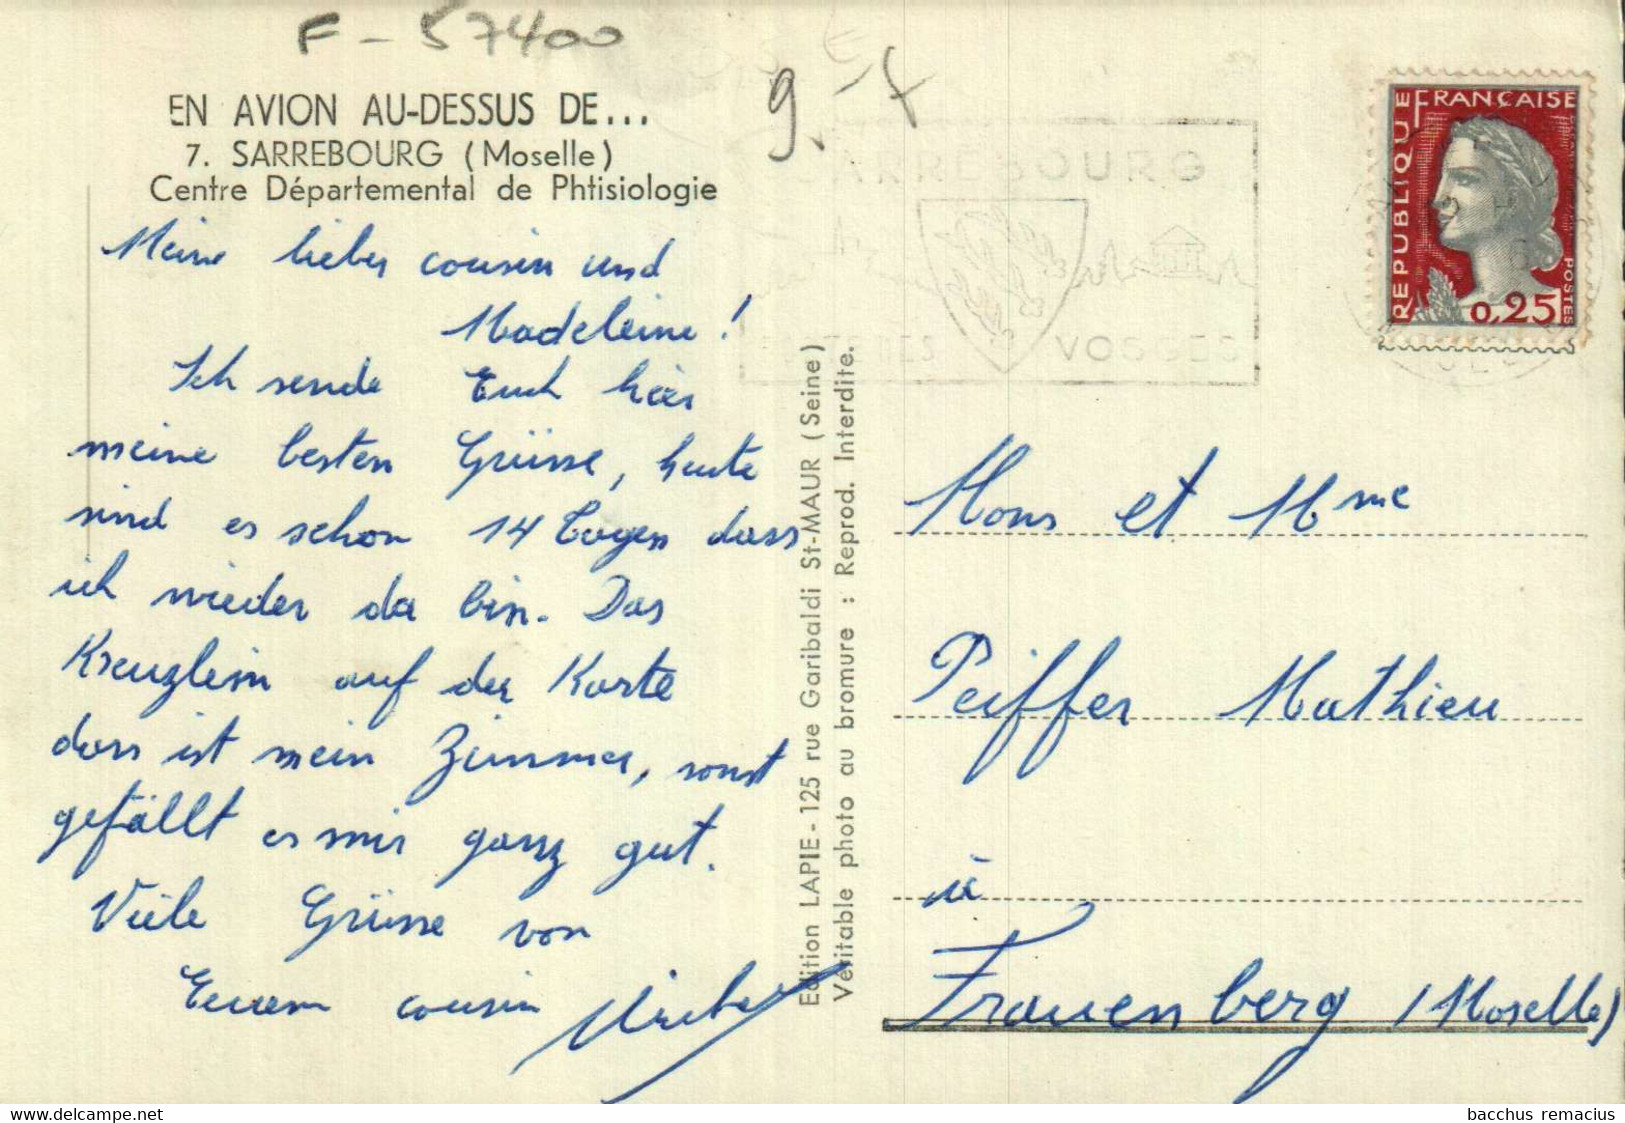 F - 57400
9. - f
EN AVION AU-DESSUS DE...
7. SARREBOURG (Moselle)
Centre Départemental de Phtisiologie
Meine lieber cousin und
Madeleine!
Ich sende Euch hier
meine besten Grüsse, heute
sind es schon 14 Tagen dass
ich wieder da bin. Das
Kreuzlein auf der Karte
dass ist mein Zimmer, sonst
gefällt es mir ganz gut.
Viele Grüsse von
Eurem cousin
Edition LAPIE - 125 rue Garibaldi St-MAUR (Seine)
Véritable photo au bromure : Reprod. Interdite.
SARREBOURG
VOSGES
REPUBLIQUE FRANÇAISE
POSTES
0,25
Mons et Mme
Peiffer Mathieu
à
Frauenberg (Moselle)
bacchus remacius